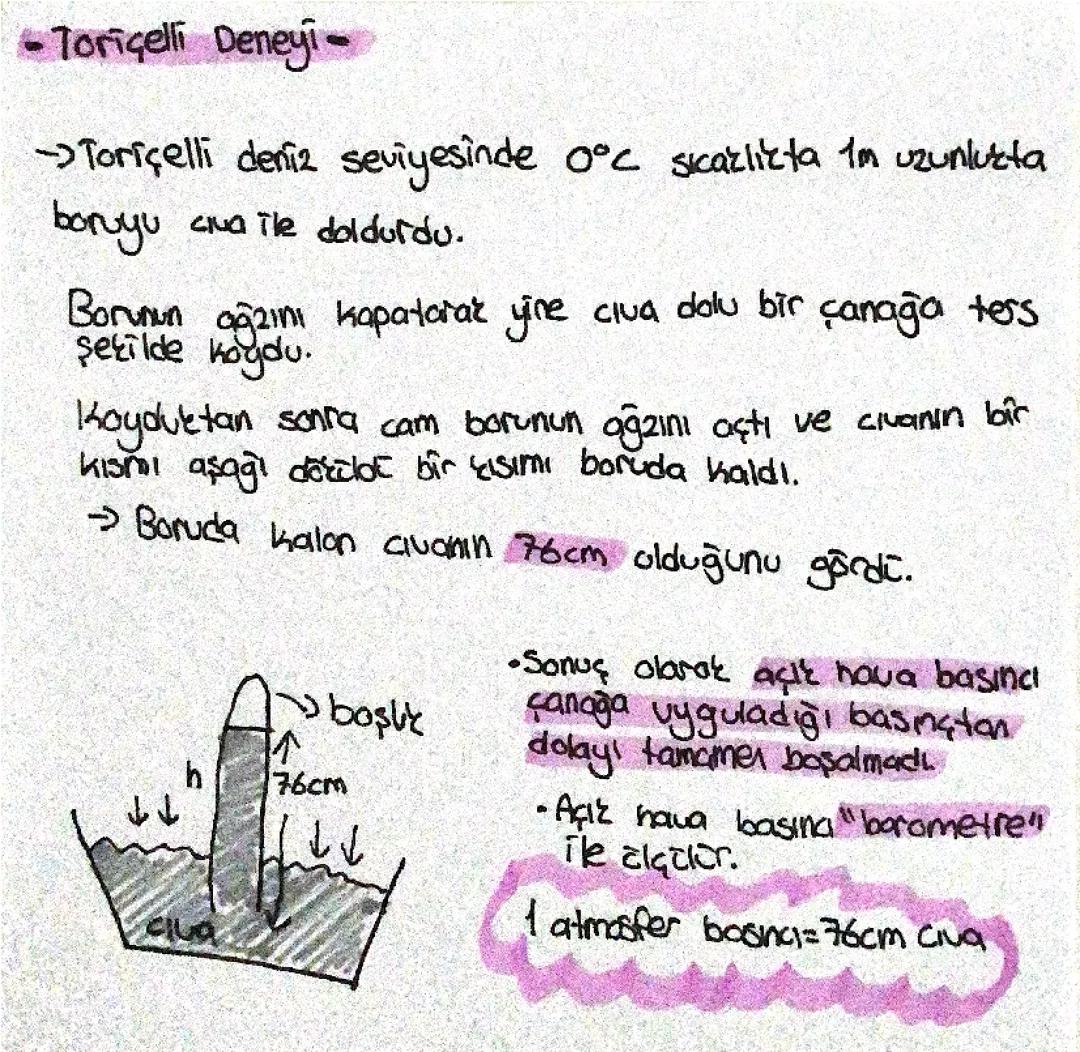 - Toriçelli Deneyi -
→ Toriçelli deniz seviyesinde 0°C sıcaklıkta 1m uzunlukta
boruyu cıva ile doldurdu.
Borunun ağzını kapatarak yine cıva dolu bir çanağa ters
şekilde koydu.
Koyduktan sonra cam borunun ağzını açtı ve cıvanın bir
kısmı aşağı döküldü bir kısımı boruda kaldı.
→ Boruda kalan cıvanın 76cm olduğunu gördü.
• Sonuç olarak açık hava basıncı
çanağa uyguladığı basınçtan
dolayı tamamen boşalmadı.
• Açık hava basıncı "barometre"
ile ölçülür.
1 atmosfer basıncı=76cm cıva
boşluk
h
76cm
cıva